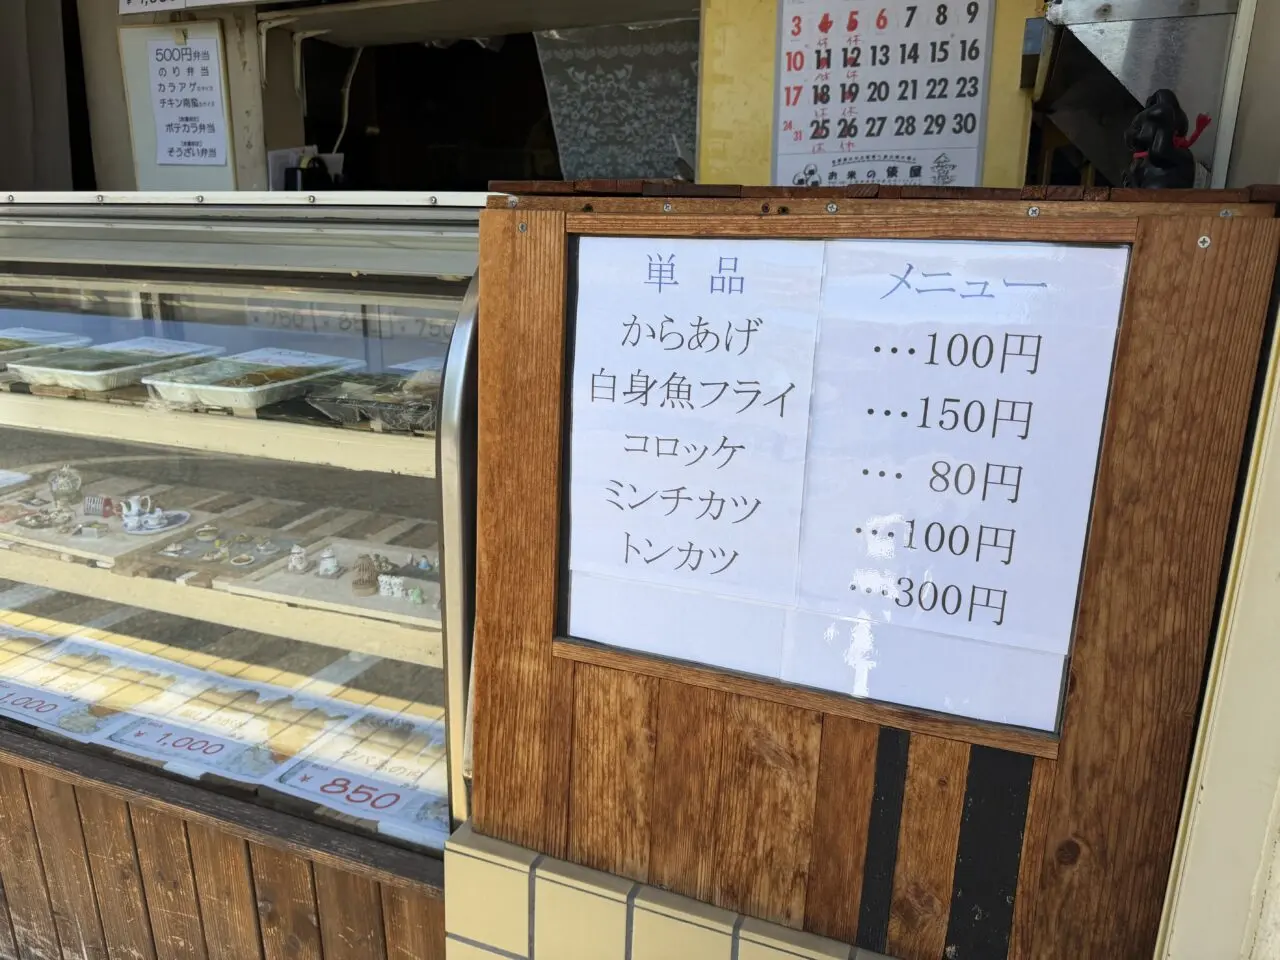 500円弁当
のり弁当
カラアゲ
チキン南蛮
ポテカラ弁当
そうざい弁当
3 4 5 6 7 8 9
10 11 12 13 14 15 16
17 18 19 20 21 22 23
24 31 25 26 27 28 29 30
お米の俵屋
単品 メニュー
からあげ …100円
白身魚フライ …150円
コロッケ … 80円
ミンチカツ …100円
トンカツ …300円
1,000
¥ 1,000
¥ 850